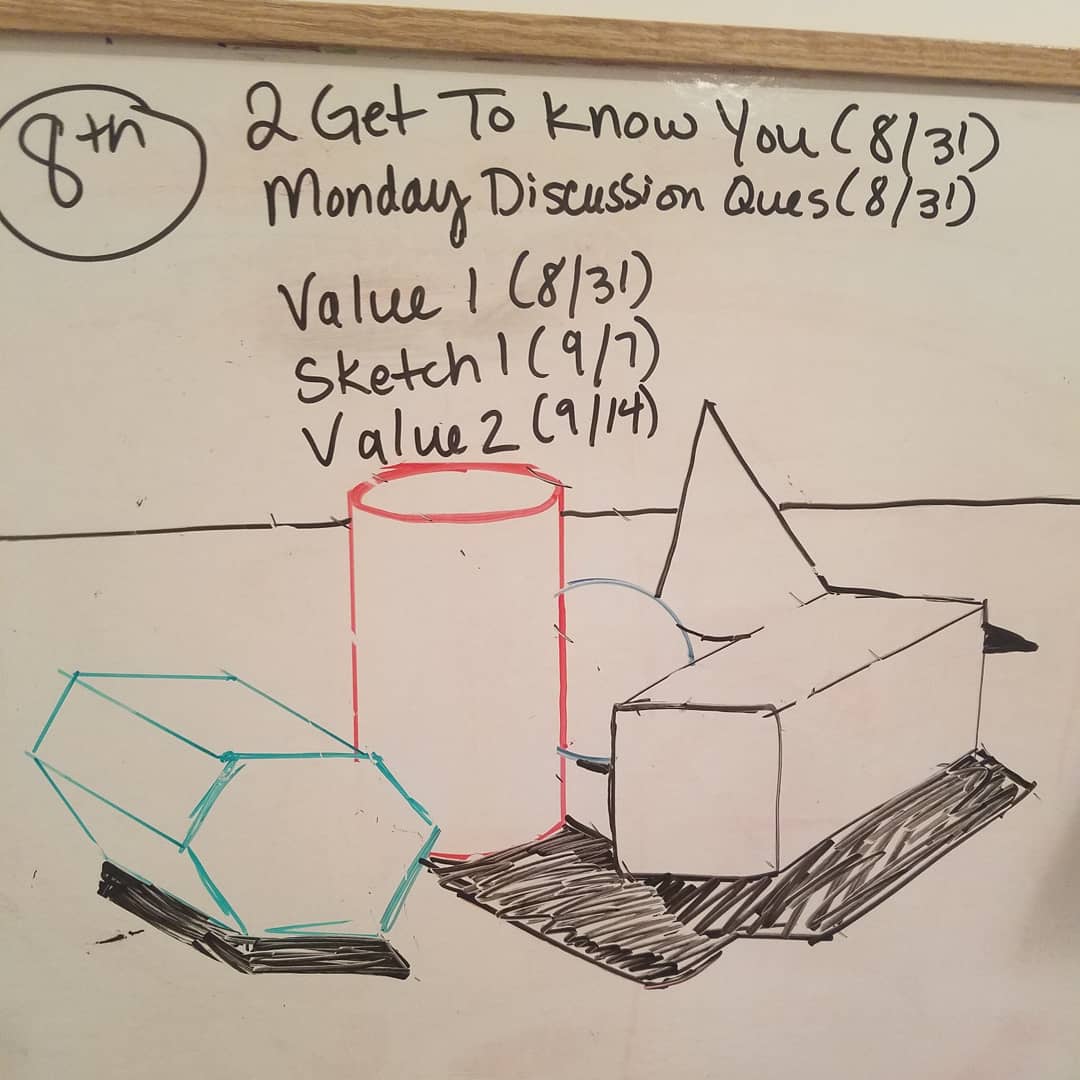 8th
2 Get To Know You (8/31)
Monday Discussion Ques (8/31)
Value 1 (8/31)
Sketch 1 (9/7)
Value 2 (9/14)